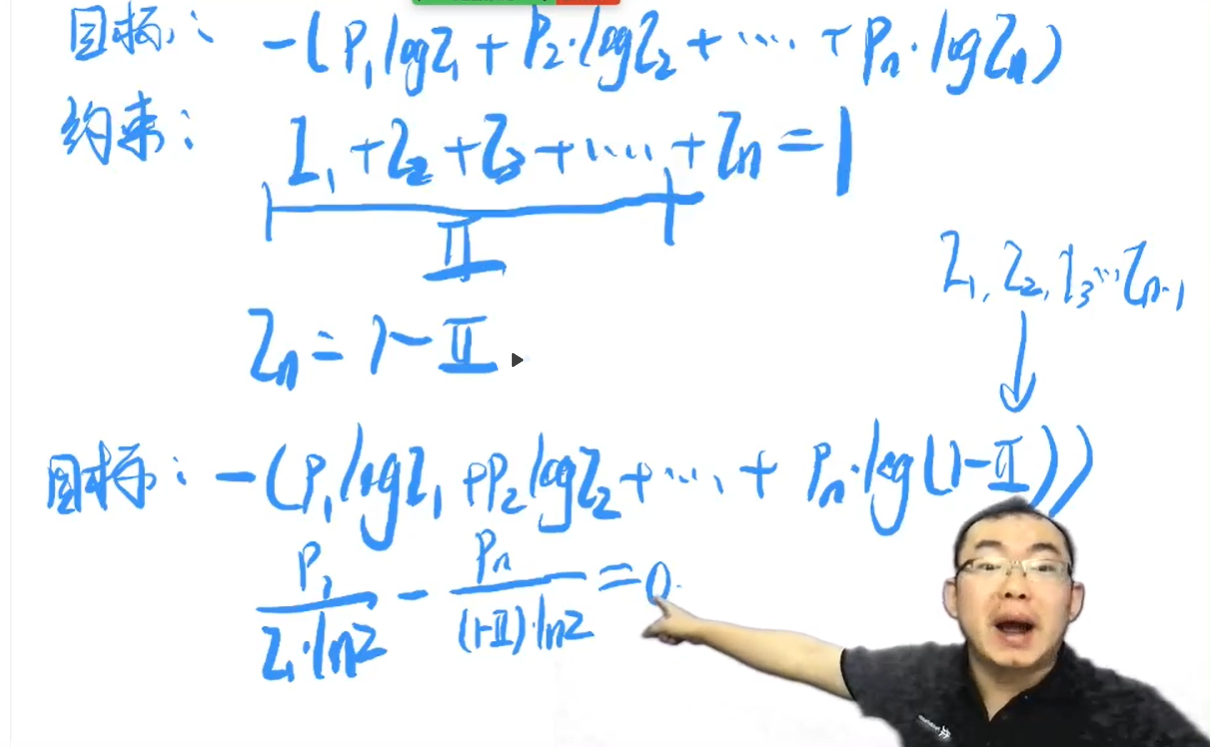 目标: -(P₁logZ₁ + P₂·logZ₂ + ···· + Pₙ·logZₙ)
约束: Z₁ + Z₂ + Z₃ + ····· + Zₙ = 1
II
Z₁, Z₂, Z₃ ··· Zₙ₋₁
Zₙ = 1 - II
目标: -(P₁logZ₁ + P₂logZ₂ + ···· + Pₙ·log(1-II))
P₁/(Z₁·ln2) - Pₙ/((1-II)·ln2) = 0